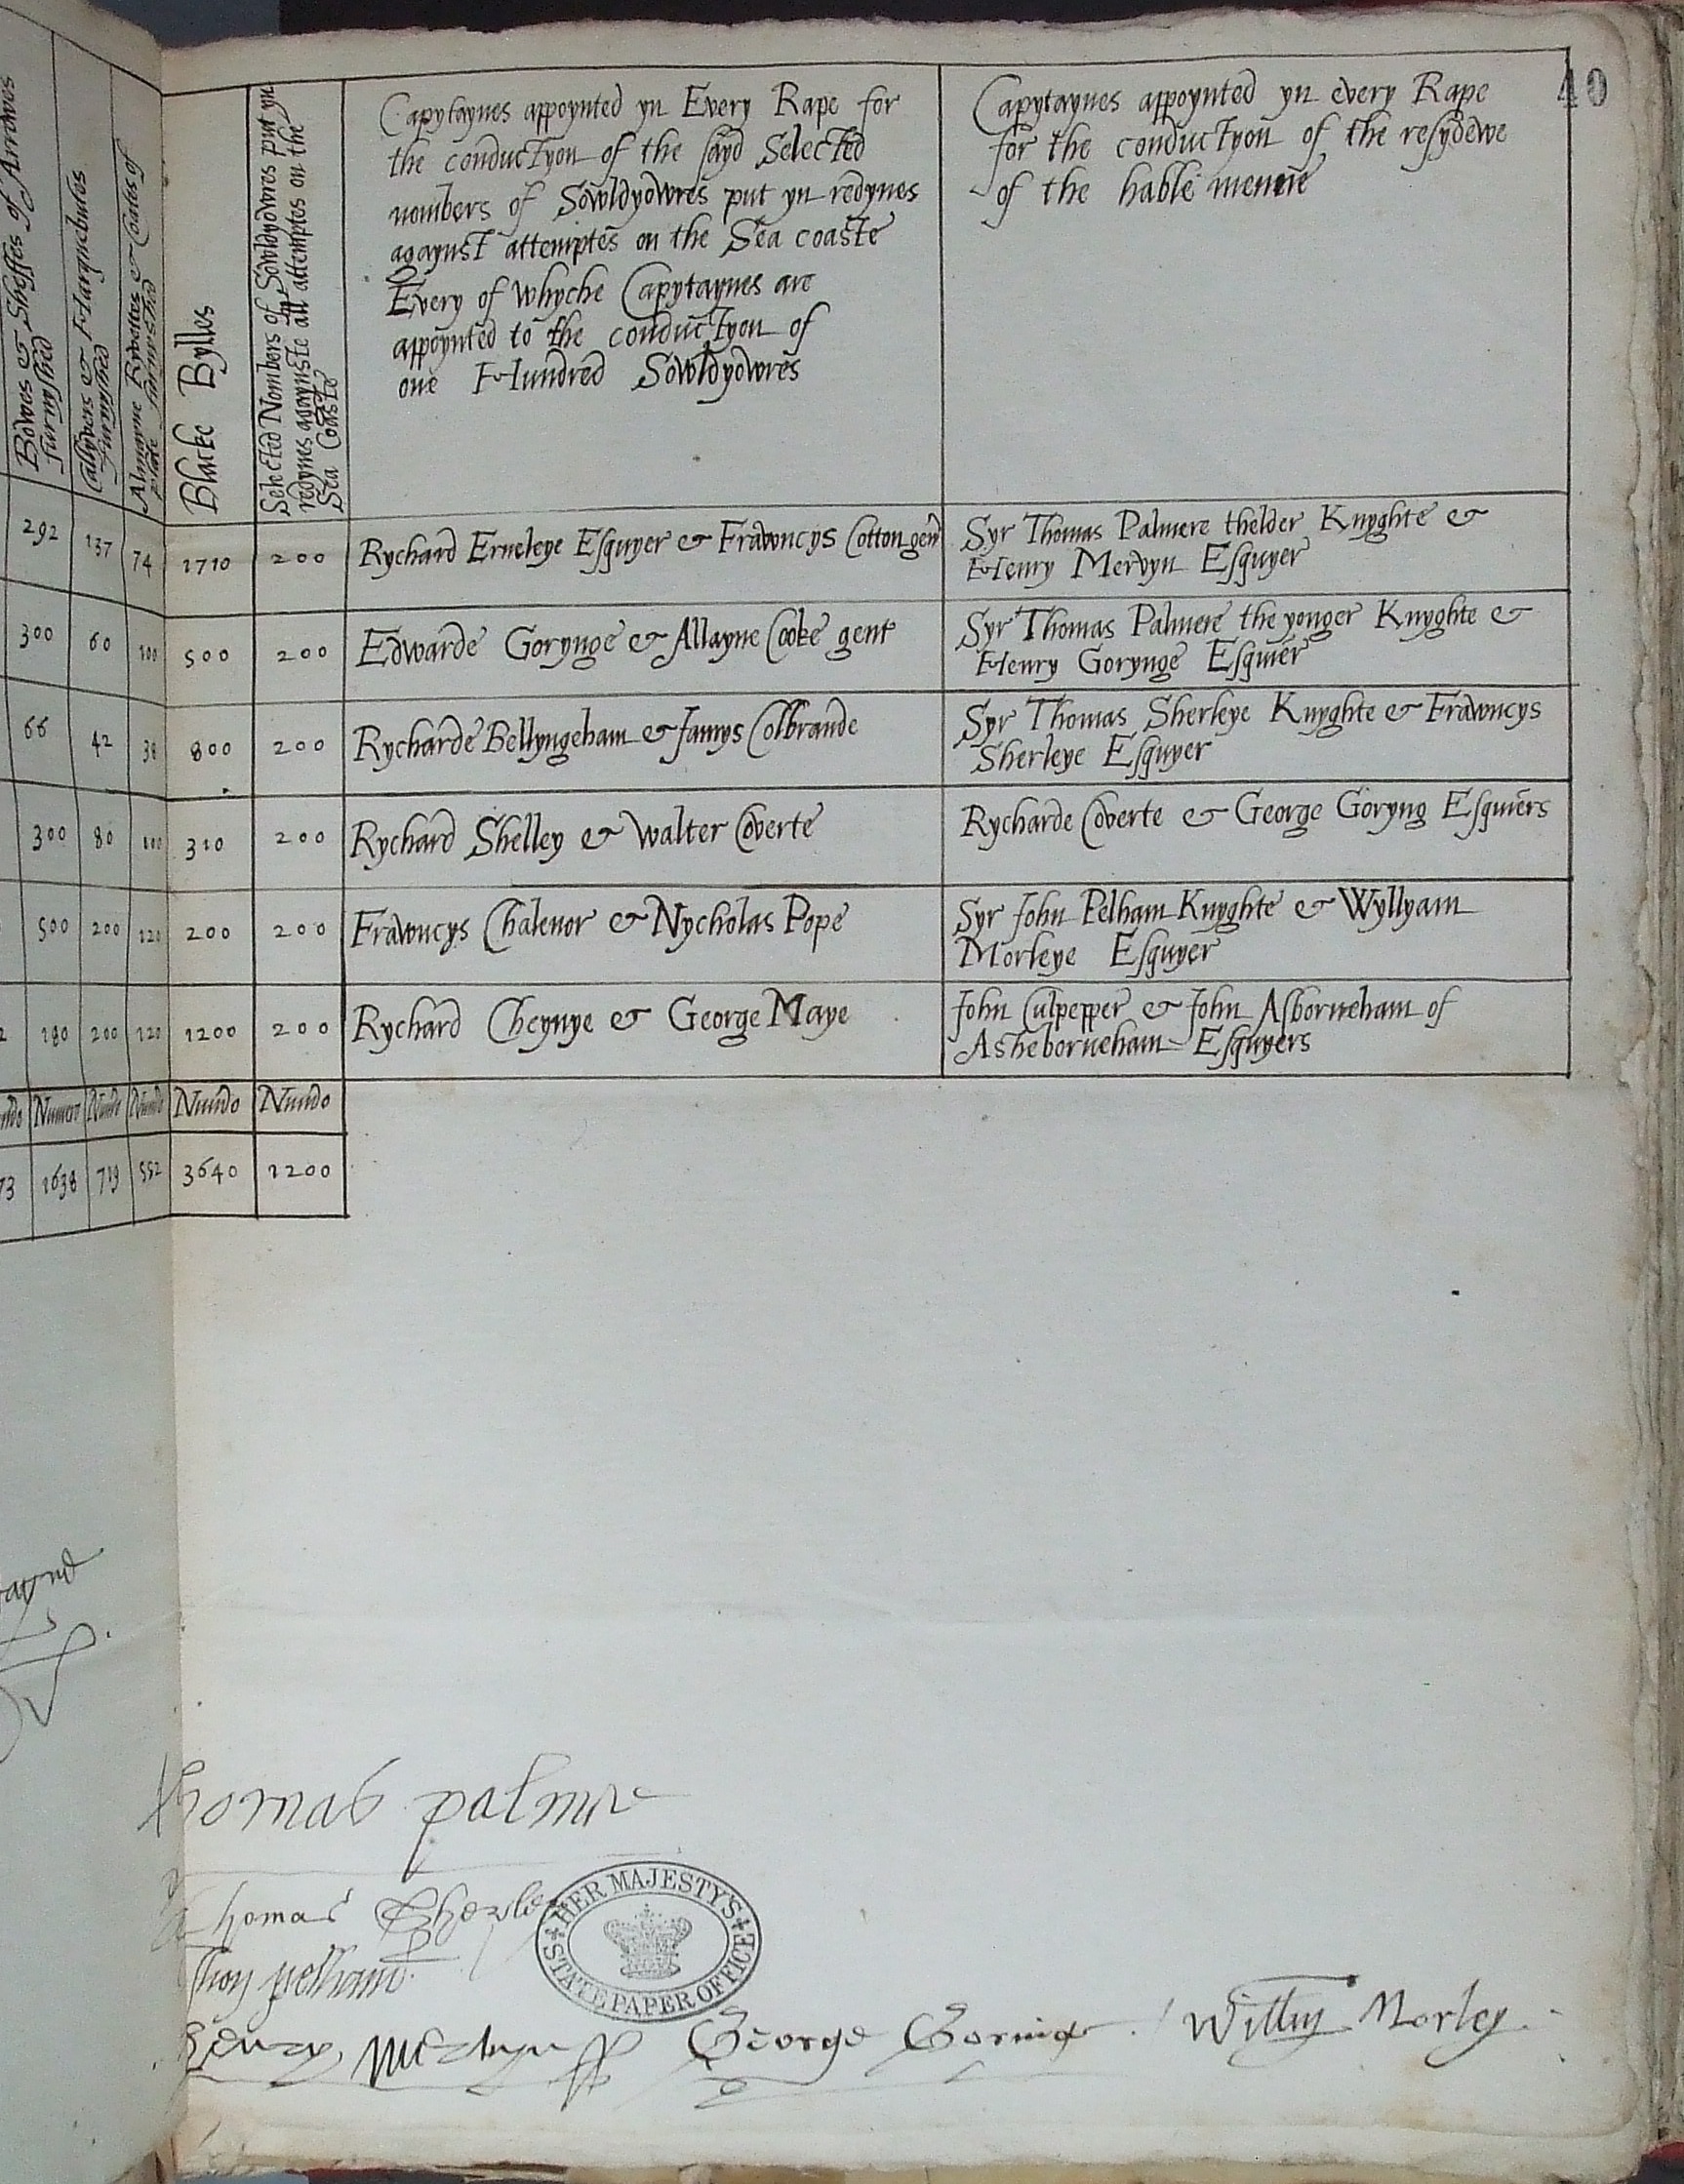 40
Bowes & Sheffes of Arrowes
furnyshed
Calyvers & Harquebutes
furnyshed
Almayne Ryvettes & Coates of
plate furnyshed
Blacke Bylles
Selected Nombers of Sowldyowres put yn
redynes agaynste all attemptes on the
Sea Coaste
Capytaynes appoynted yn Every Rape for
the conductyon of the sayd Selected
nombers of Sowldyowres put yn redynes
agaynst attemptes on the Sea coaste
Every of whyche Capytaynes are
appoynted to the conductyon of
one Hundred Sowldyowres
Capytaynes appoynted yn every Rape
for the conductyon of the resydewe
of the hable menne
292 137 74 1710 200 Rychard Erneleye Esquyer & Frawncys Cotton gent
Syr Thomas Palmere thelder Knyghte &
Henry Mervyn Esquyer
300 60 100 500 200 Edwarde Gorynge & Allayne Cooke gent
Syr Thomas Palmere the yonger Knyghte &
Henry Gorynge Esquier
66 42 38 800 200 Rycharde Bellyngeham & Jamys Colbrande
Syr Thomas Sherleye Knyghte & Frawncys
Sherleye Esquyer
300 80 100 310 200 Rychard Shelley & Walter Coverte
Rycharde Coverte & George Goryng Esquiers
500 200 120 200 200 Frawncys Chalenor & Nycholas Pope
Syr John Pelham Knyghte & Wyllyam
Morleye Esquyer
180 200 120 1200 200 Rychard Cheynye & George Maye
John Culpepper & John Asborneham of
Asheborneham Esquyers
Numero Numo Numo Numo Numo
73 1638 719 552 3640 1200
Thomas palmer
Thomas Sherley
Jhon pelham
Henry Mervyn George Goring Willm Morley
HER MAJESTY'S
STATE PAPER OFFICE